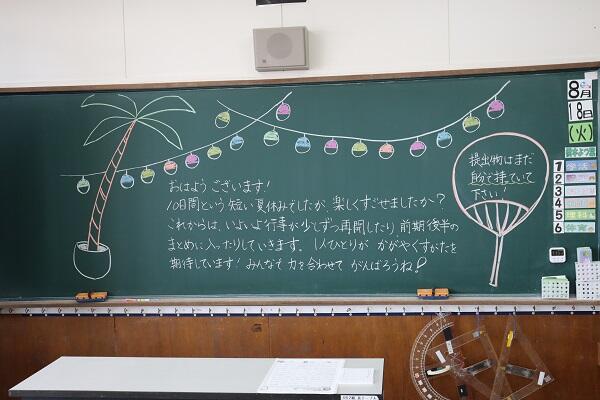 おはようございます!
10日間という短い夏休みでしたが、楽しくすごせましたか?
これからは、いよいよ行事が少しずつ再開したり、前期後半の
まとめに入ったりしていきます。1人ひとりが かがやくすがたを
期待しています! みんなで力を合わせて がんばろうね!
提出物はまだ
自分で持っていて
下さい!
8月
18日
(火)
1
2
3
4
5
6